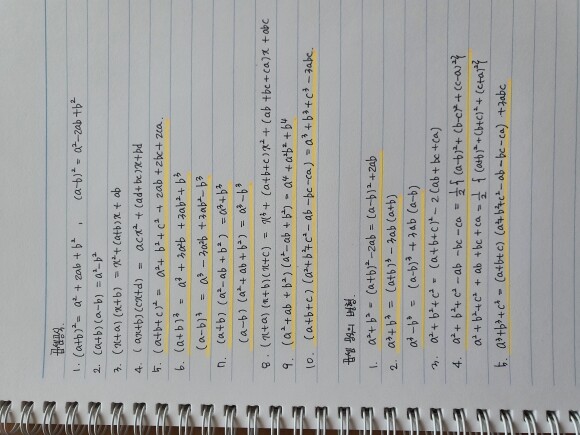 곱셈공식
1. (a+b)² = a² + 2ab + b² , (a-b)² = a² - 2ab + b²
2. (a+b)(a-b) = a² - b²
3. (x+a)(x+b) = x² + (a+b)x + ab
4. (ax+b)(cx+d) = acx² + (ad+bc)x + bd
5. (a+b+c)² = a² + b² + c² + 2ab + 2bc + 2ca.
6. (a+b)³ = a³ + 3a²b + 3ab² + b³
(a-b)³ = a³ - 3a²b + 3ab² - b³
7. (a+b)(a² - ab + b²) = a³ + b³
(a-b)(a² + ab + b²) = a³ - b³
8. (x+a)(x+b)(x+c) = x³ + (a+b+c)x² + (ab+bc+ca)x + abc
9. (a² + ab + b²)(a² - ab + b²) = a⁴ + a²b² + b⁴
10. (a+b+c)(a²+b²+c² - ab - bc - ca) = a³ + b³ + c³ - 3abc.
곱셈 공식의 변형.
1. a² + b² = (a+b)² - 2ab = (a-b)² + 2ab
2. a³ + b³ = (a+b)³ - 3ab(a+b)
a³ - b³ = (a-b)³ + 3ab(a-b)
3. a² + b² + c² = (a+b+c)² - 2(ab+bc+ca)
4. a² + b² + c² - ab - bc - ca = ½{(a-b)² + (b-c)² + (c-a)²}
a² + b² + c² + ab + bc + ca = ½{(a+b)² + (b+c)² + (c+a)²}
5. a³+b³+c³ = (a+b+c)(a²+b²+c² - ab - bc - ca) + 3abc